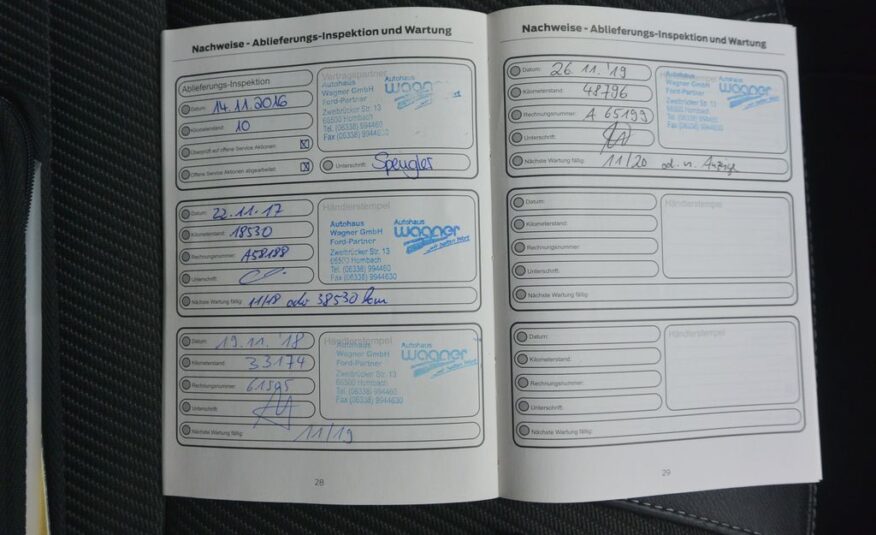 Nachweise - Ablieferungs-Inspektion und Wartung
Ablieferungs-Inspektion
Datum: 14.11.2016
Kilometerstand: 10
Überprüft auf offene Service Aktionen:
Offene Service Aktionen abgearbeitet:
Vertragspartner
Autohaus
Wagner GmbH
Ford-Partner
Zweibrücker Str. 13
66500 Hornbach
Tel. (06338) 994460
Fax (06338) 9944630
Autohaus
wagner
Unterschrift: Spengler
Datum: 22.11.17
Kilometerstand: 18530
Rechnungsnummer: A58188
Unterschrift:
Händlerstempel
Autohaus
Wagner GmbH
Ford-Partner
Zweibrücker Str. 13
66500 Hornbach
Tel. (06338) 994460
Fax (06338) 9944630
Autohaus
wagner
Nächste Wartung fällig: 11/18 oder 38530 km
Datum: 19.11.'18
Kilometerstand: 33174
Rechnungsnummer: 61595
Unterschrift:
Händlerstempel
Autohaus
Wagner GmbH
Ford-Partner
Zweibrücker Str. 13
66500 Hornbach
Tel. (06338) 994460
Fax (06338) 9944630
Autohaus
wagner
Nächste Wartung fällig: 11/19
28
Nachweise - Ablieferungs-Inspektion und Wartung
Datum: 26.11.'19
Kilometerstand: 48796
Rechnungsnummer: A 65199
Unterschrift:
Autohaus
Wagner GmbH
Ford-Partner
Zweibrücker Str. 13
66500 Hornbach
Tel. (06338) 994460
Fax (06338) 9944630
Autohaus
wagner
Nächste Wartung fällig: 11/20 od. n. Anzeige
Datum:
Kilometerstand:
Rechnungsnummer:
Unterschrift:
Händlerstempel
Nächste Wartung fällig:
Datum:
Kilometerstand:
Rechnungsnummer:
Unterschrift:
Händlerstempel
Nächste Wartung fällig:
29